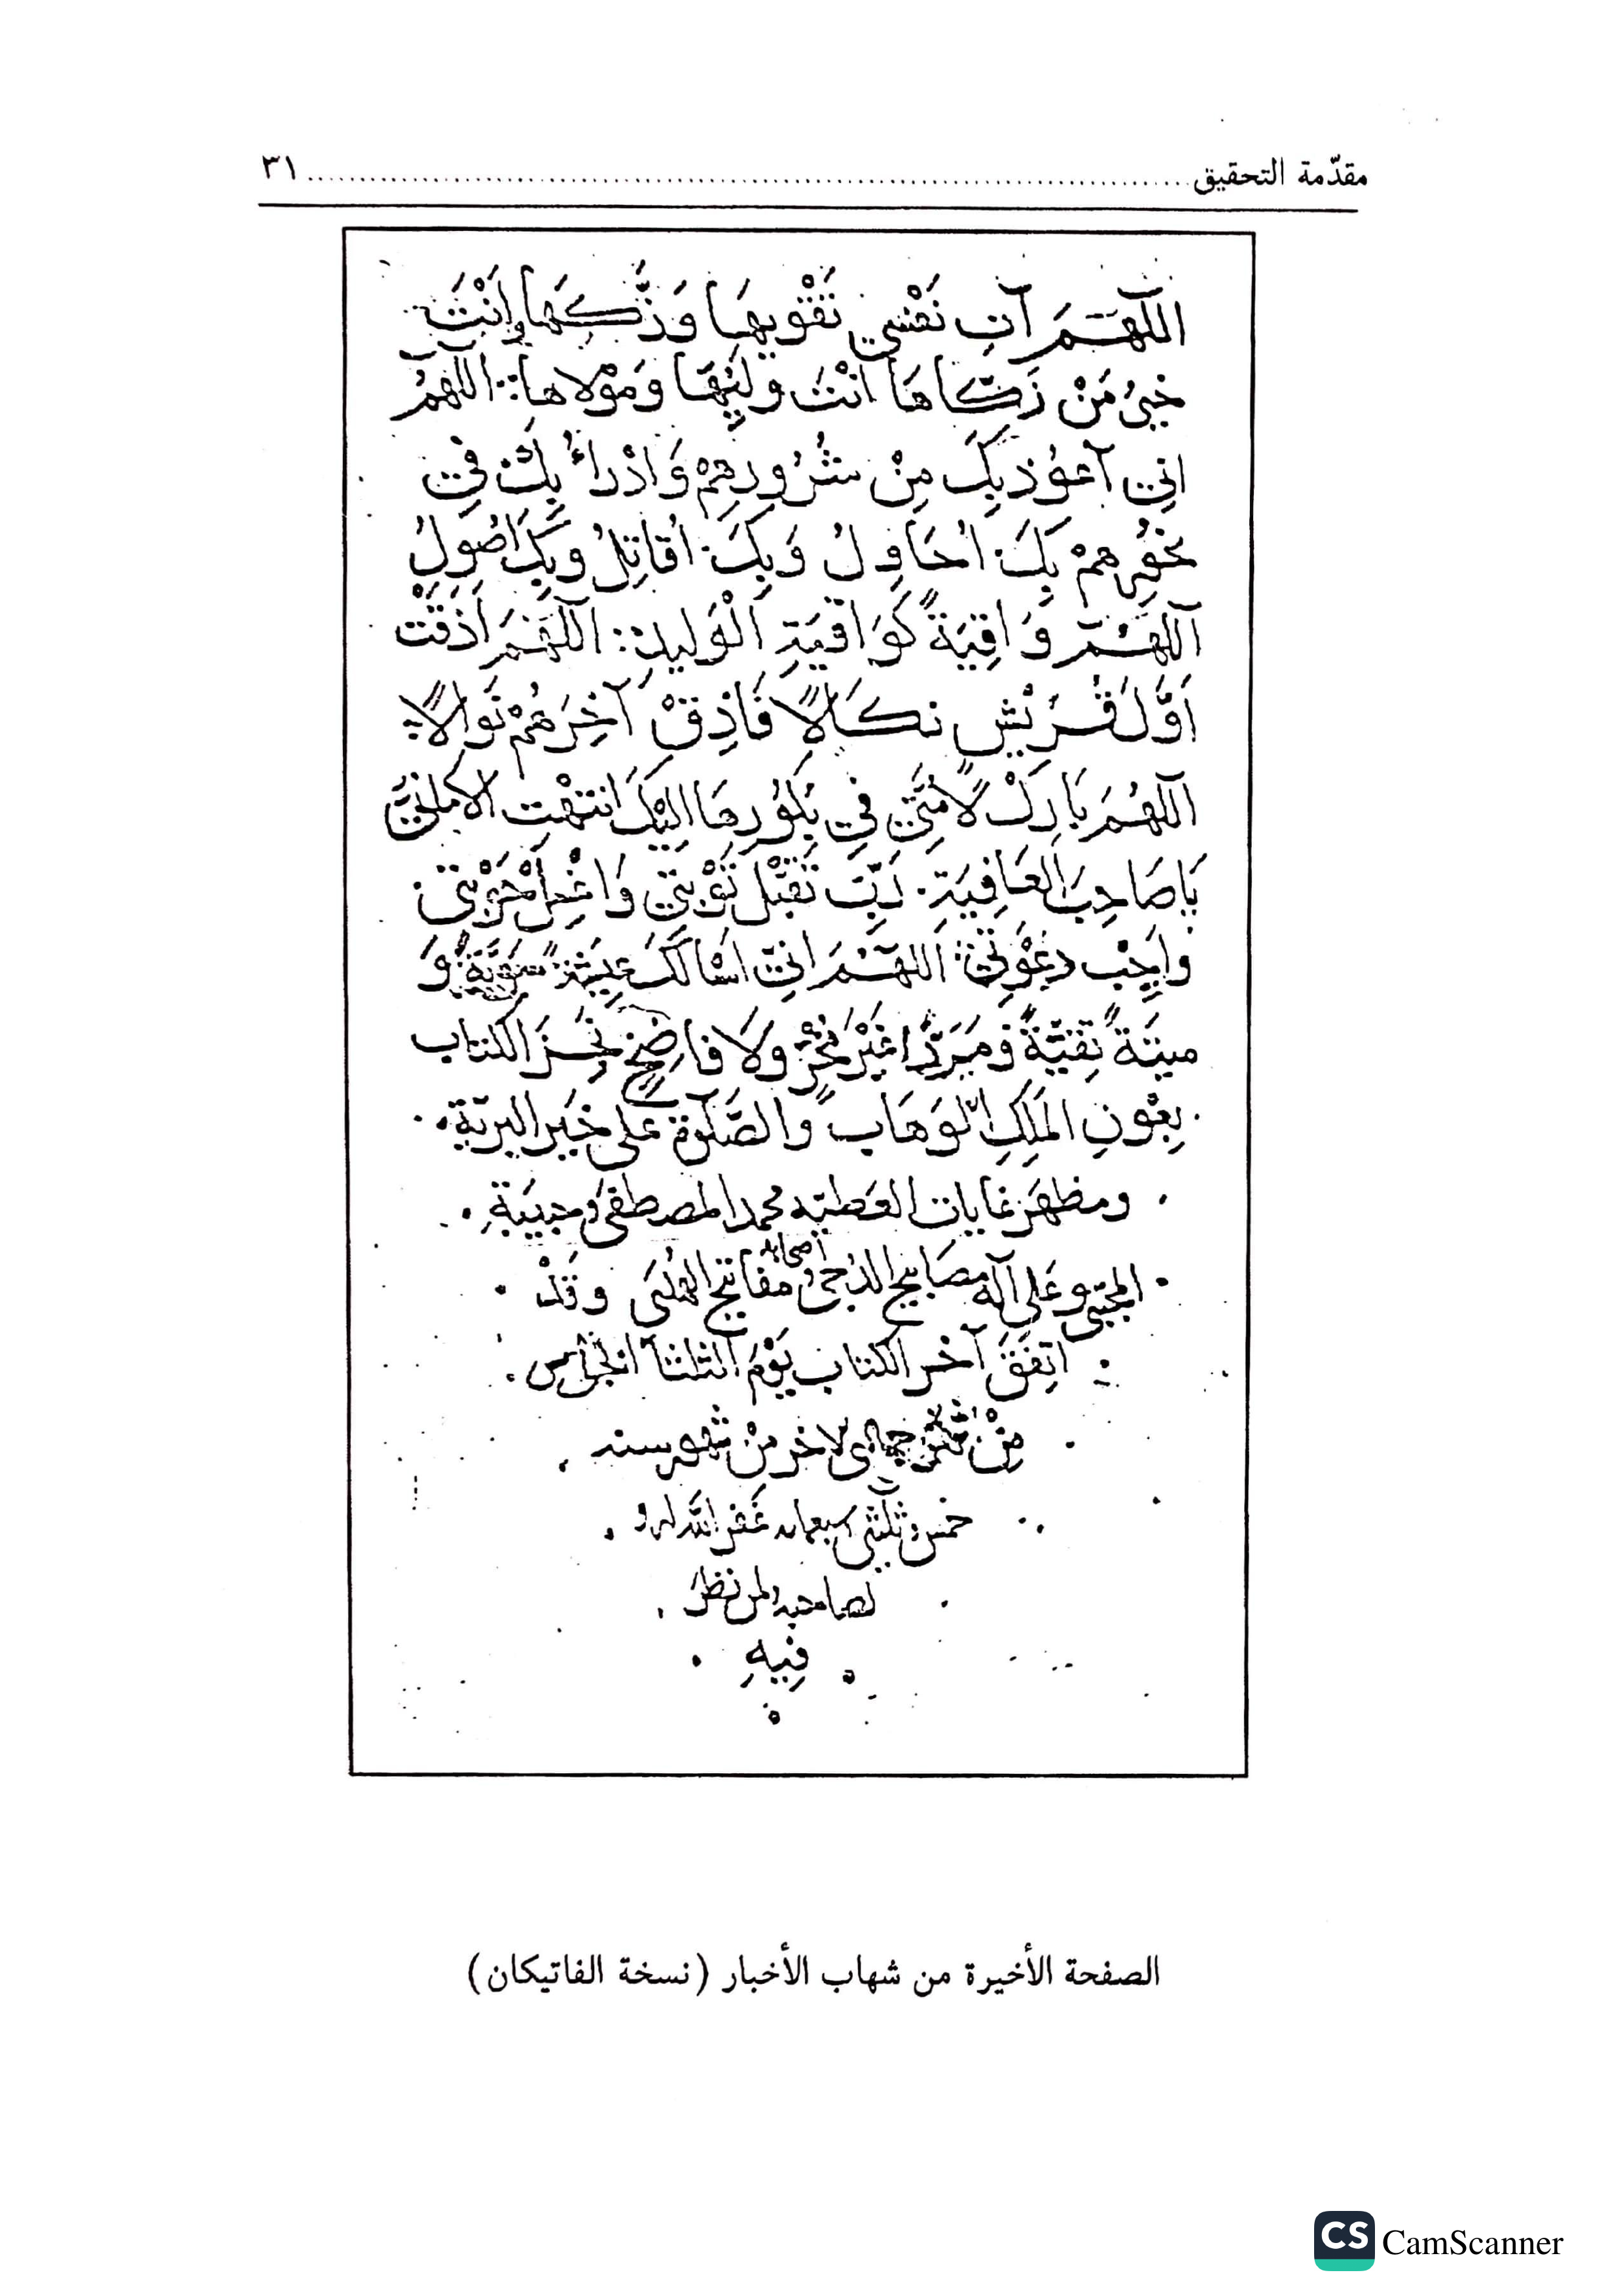 مقدّمة التحقيق ................ ٣١
اللّهُمَّ آتِ نَفْسي تَقْويهَا وَزَكِّهَا وانْتَ
خَيرُ مَنْ زَكّاهَا انْتَ وليُّهَا وَمَوْلاها: اللّهمَّ
انِي آعُوذ بِكَ مِنْ شُرُورِهِمْ وَادْرَاءُ بِكَ فِي
نحُورِهمْ بِكَ احَاوِلُ وَبِكَ اقَاتِلُ وبِكَ اصُولُ
اللّهُمَّ وَاقِيَةً كَوَاقيَةِ الْوَليدِ: اللّهُمَّ اَذَقْتَ
اَوَّلَ قُرَيْشٍ نكَالاً فَاَذِقْ آخِرَهُمْ نَوَالاً
اللّهُمَّ بَارِكْ لاُمَّتِي فِي بُكُورِهَا اِلَيْكَ انتَهَتِ الامَانيُّ
يَا صَاحِبَ العَافِيَةِ. رَبِّ تَقَبَّلْ تَوْبَتِي وَاغْسِلْ حَوْبَتِي
واَجِبْ دعْوَتِي: اللّهُمَّ انِي اسْالكَ عيشَةً سَوِيَّةً وَ
ميتَةً تقيّةً وَمَرَدًّا غَيْرَ مُخْزٍ ولاَ فاضحٍ نَجَزَ الكتاب
بِعَوْنِ المَلِكِ الوَهَاب والصَّلَوةُ على خَيرِ البريّة
ومظهَر غايات العَطيّه محمد المصطفى وحبيبَهِ
المجتبى وعَلى آلهِ مصَابيح الدُجى وَ اصحابه مفاتيح الهُدَى وقَدْ
اتفَقَ آخر الكتاب يَوْمَ الثلثا الخامس
مِنْ جمادى لاخر مِنْ شهور سنه
خمس وثلثين سبعمايه غفَر الله له وَ
لصاحبه ولمن نظَرَ
فِيهِ
الصفحة الأخيرة من شهاب الأخبار (نسخة الفاتيكان)
CS CamScanner